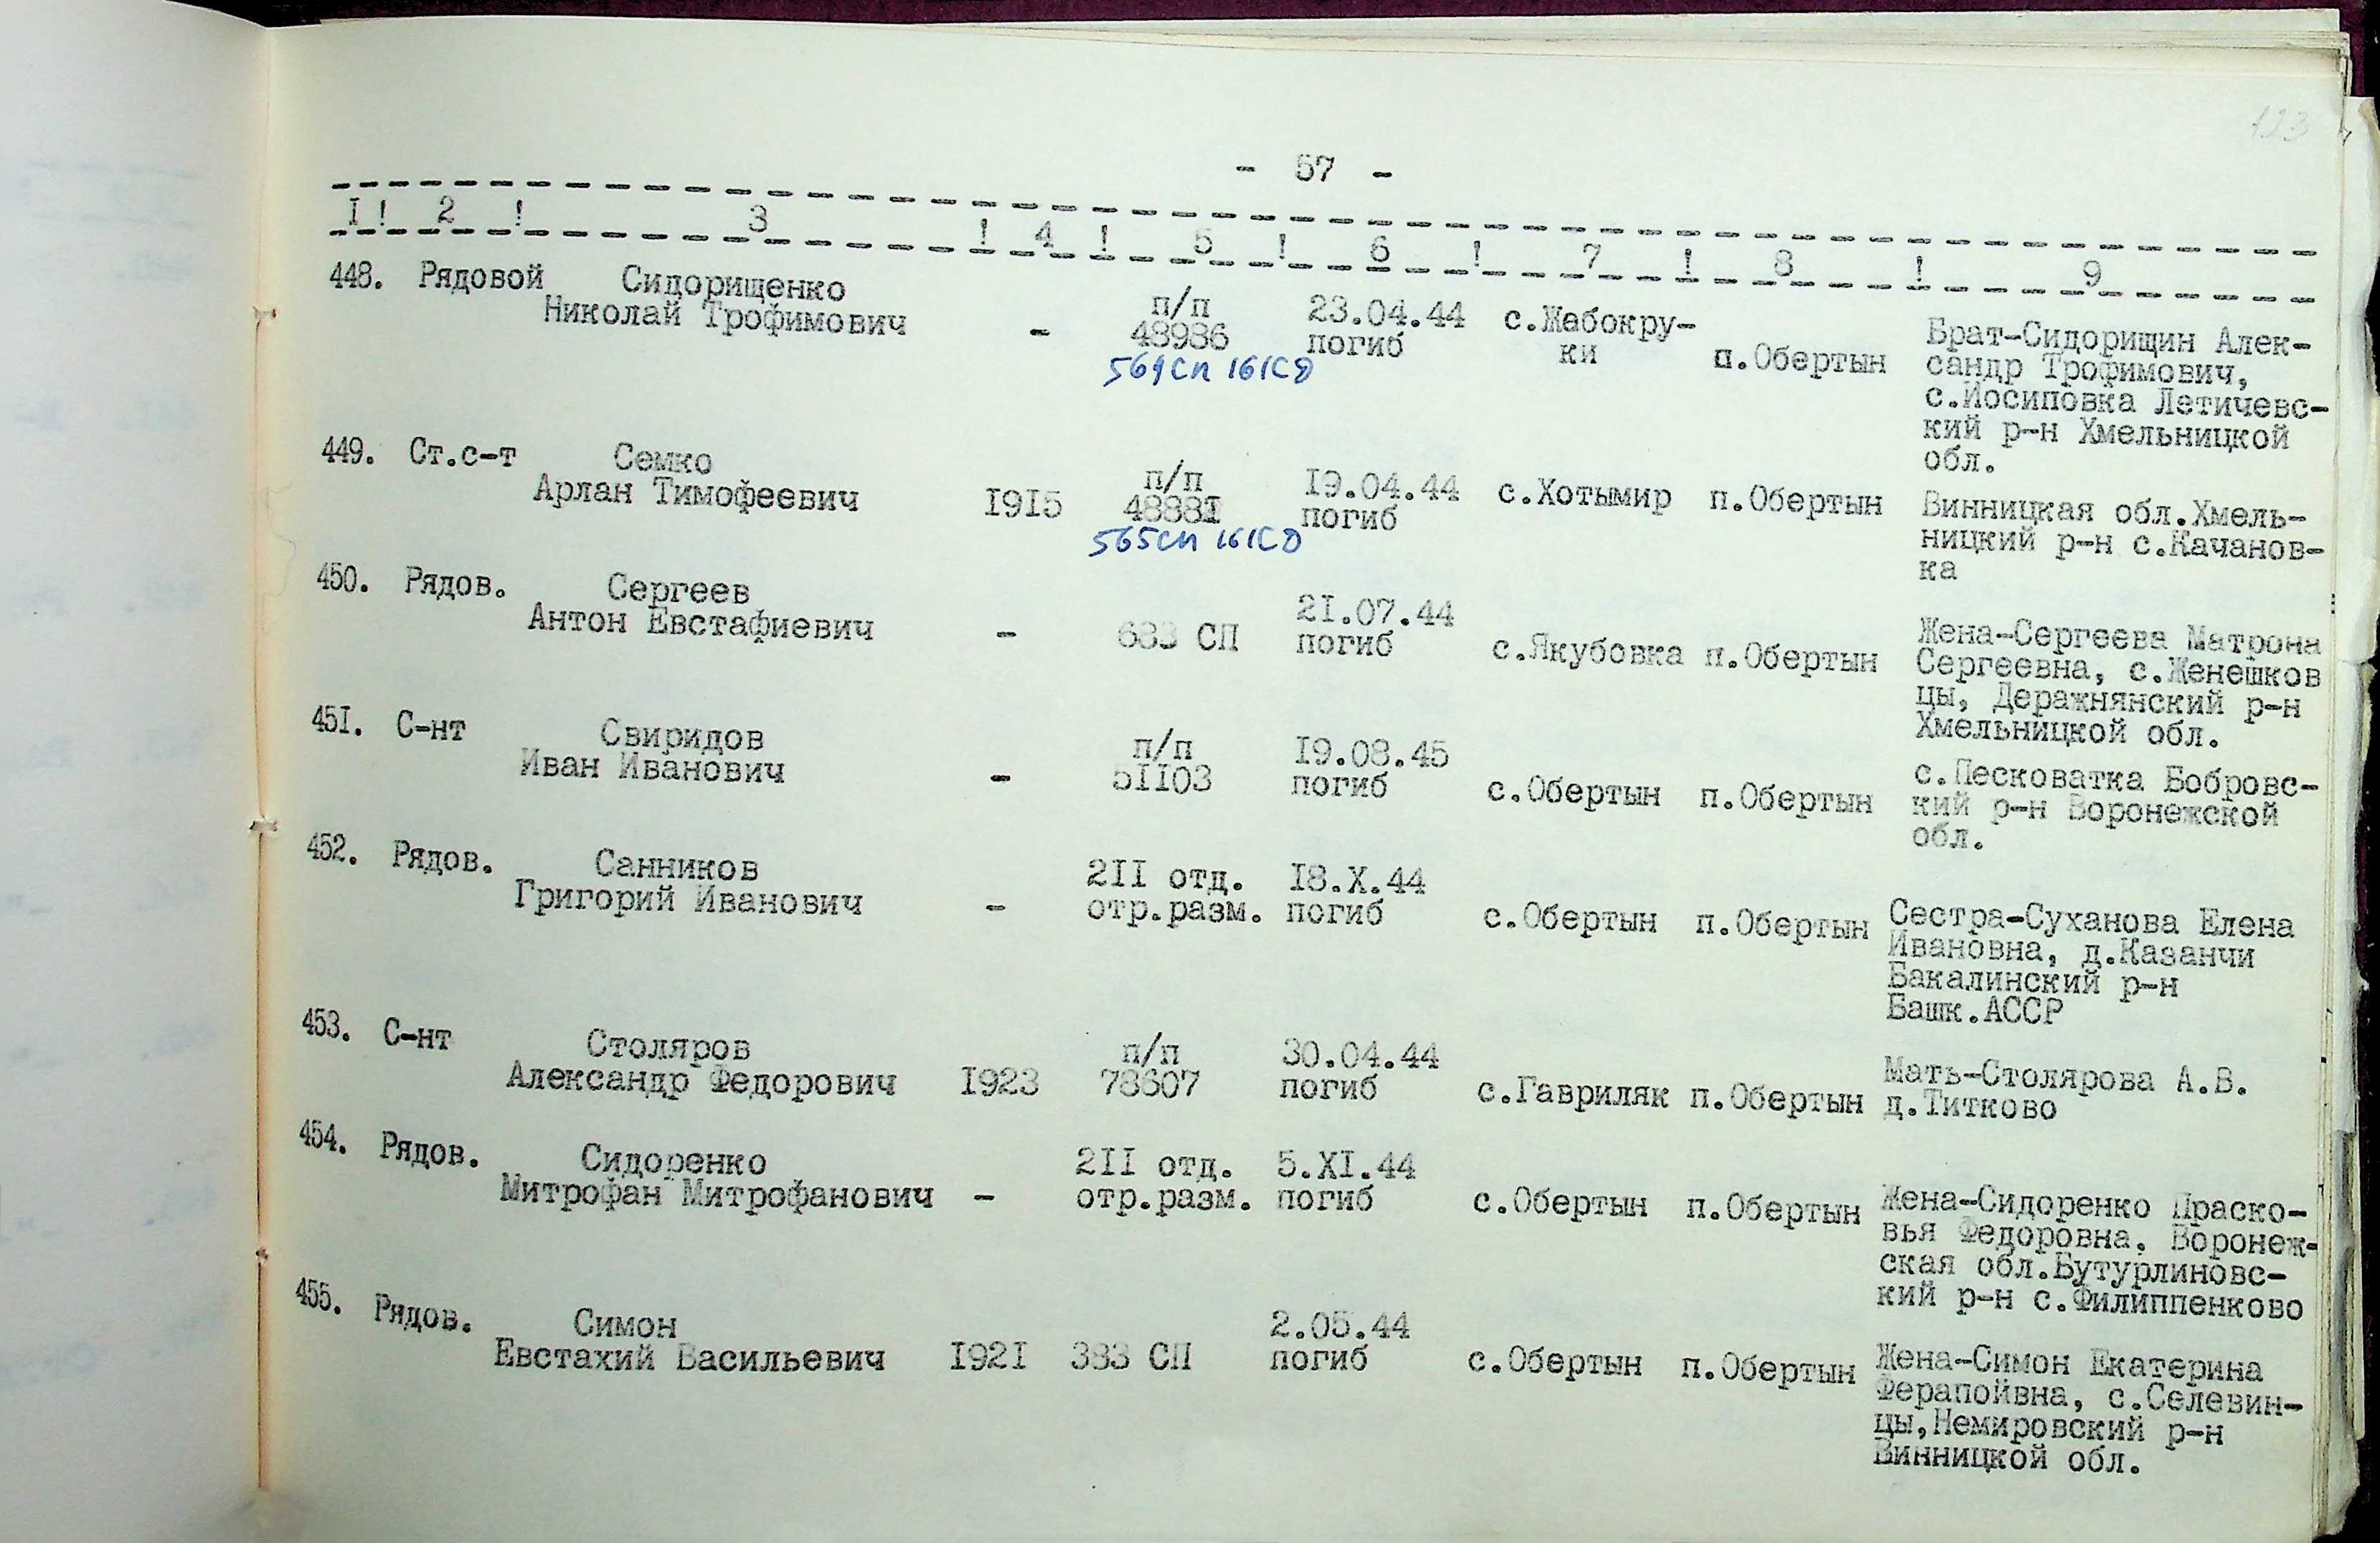 123
- 57 -
1 ! 2 ! 3 ! 4 ! 5 ! 6 ! 7 ! 8 ! 9
448. Рядовой Сидорищенко
Николай Трофимович - п/п 48986 23.04.44 погиб с.Жабокру-
ки п.Обертын
569СП 161СД
Брат-Сидорищин Алек-
сандр Трофимович,
с.Йосиповка Летичевс-
кий р-н Хмельницкой
обл.
449. Ст.с-т Семко
Арлан Тимофеевич 1915 п/п 19.04.44 погиб с.Хотымир п.Обертын
565СП 161СД
Винницкая обл.Хмель-
ницкий р-н с.Качанов-
ка
450. Рядов. Сергеев
Антон Евстафиевич - 683 СП 21.07.44 погиб с.Якубовка п.Обертын
Жена-Сергеева Матрона
Сергеевна, с.Женешков
цы, Деражнянский р-н
Хмельницкой обл.
451. С-нт Свиридов
Иван Иванович - п/п 51103 19.08.45 погиб с.Обертын п.Обертын
с.Песковатка Бобровс-
кий р-н Воронежской
обл.
452. Рядов. Санников
Григорий Иванович - 211 отд. отр.разм. 18.X.44 погиб с.Обертын п.Обертын
Сестра-Суханова Елена
Ивановна, д.Казанчи
Бакалинский р-н
Башк.АССР
453. С-нт Столяров
Александр Федорович 1923 п/п 78607 30.04.44 погиб с.Гавриляк п.Обертын
Мать-Столярова А.В.
д.Титково
454. Рядов. Сидоренко
Митрофан Митрофанович - 211 отд. отр.разм. 5.XI.44 погиб с.Обертын п.Обертын
Жена-Сидоренко Праско-
вья Федоровна. Воронеж-
ская обл.Бутурлиновс-
кий р-н с.Филиппенково
455. Рядов. Симон
Евстахий Васильевич 1921 383 СП 2.05.44 погиб с.Обертын п.Обертын
Жена-Симон Екатерина
Ферапойвна, с.Селевин-
цы,Немировский р-н
Винницкой обл.